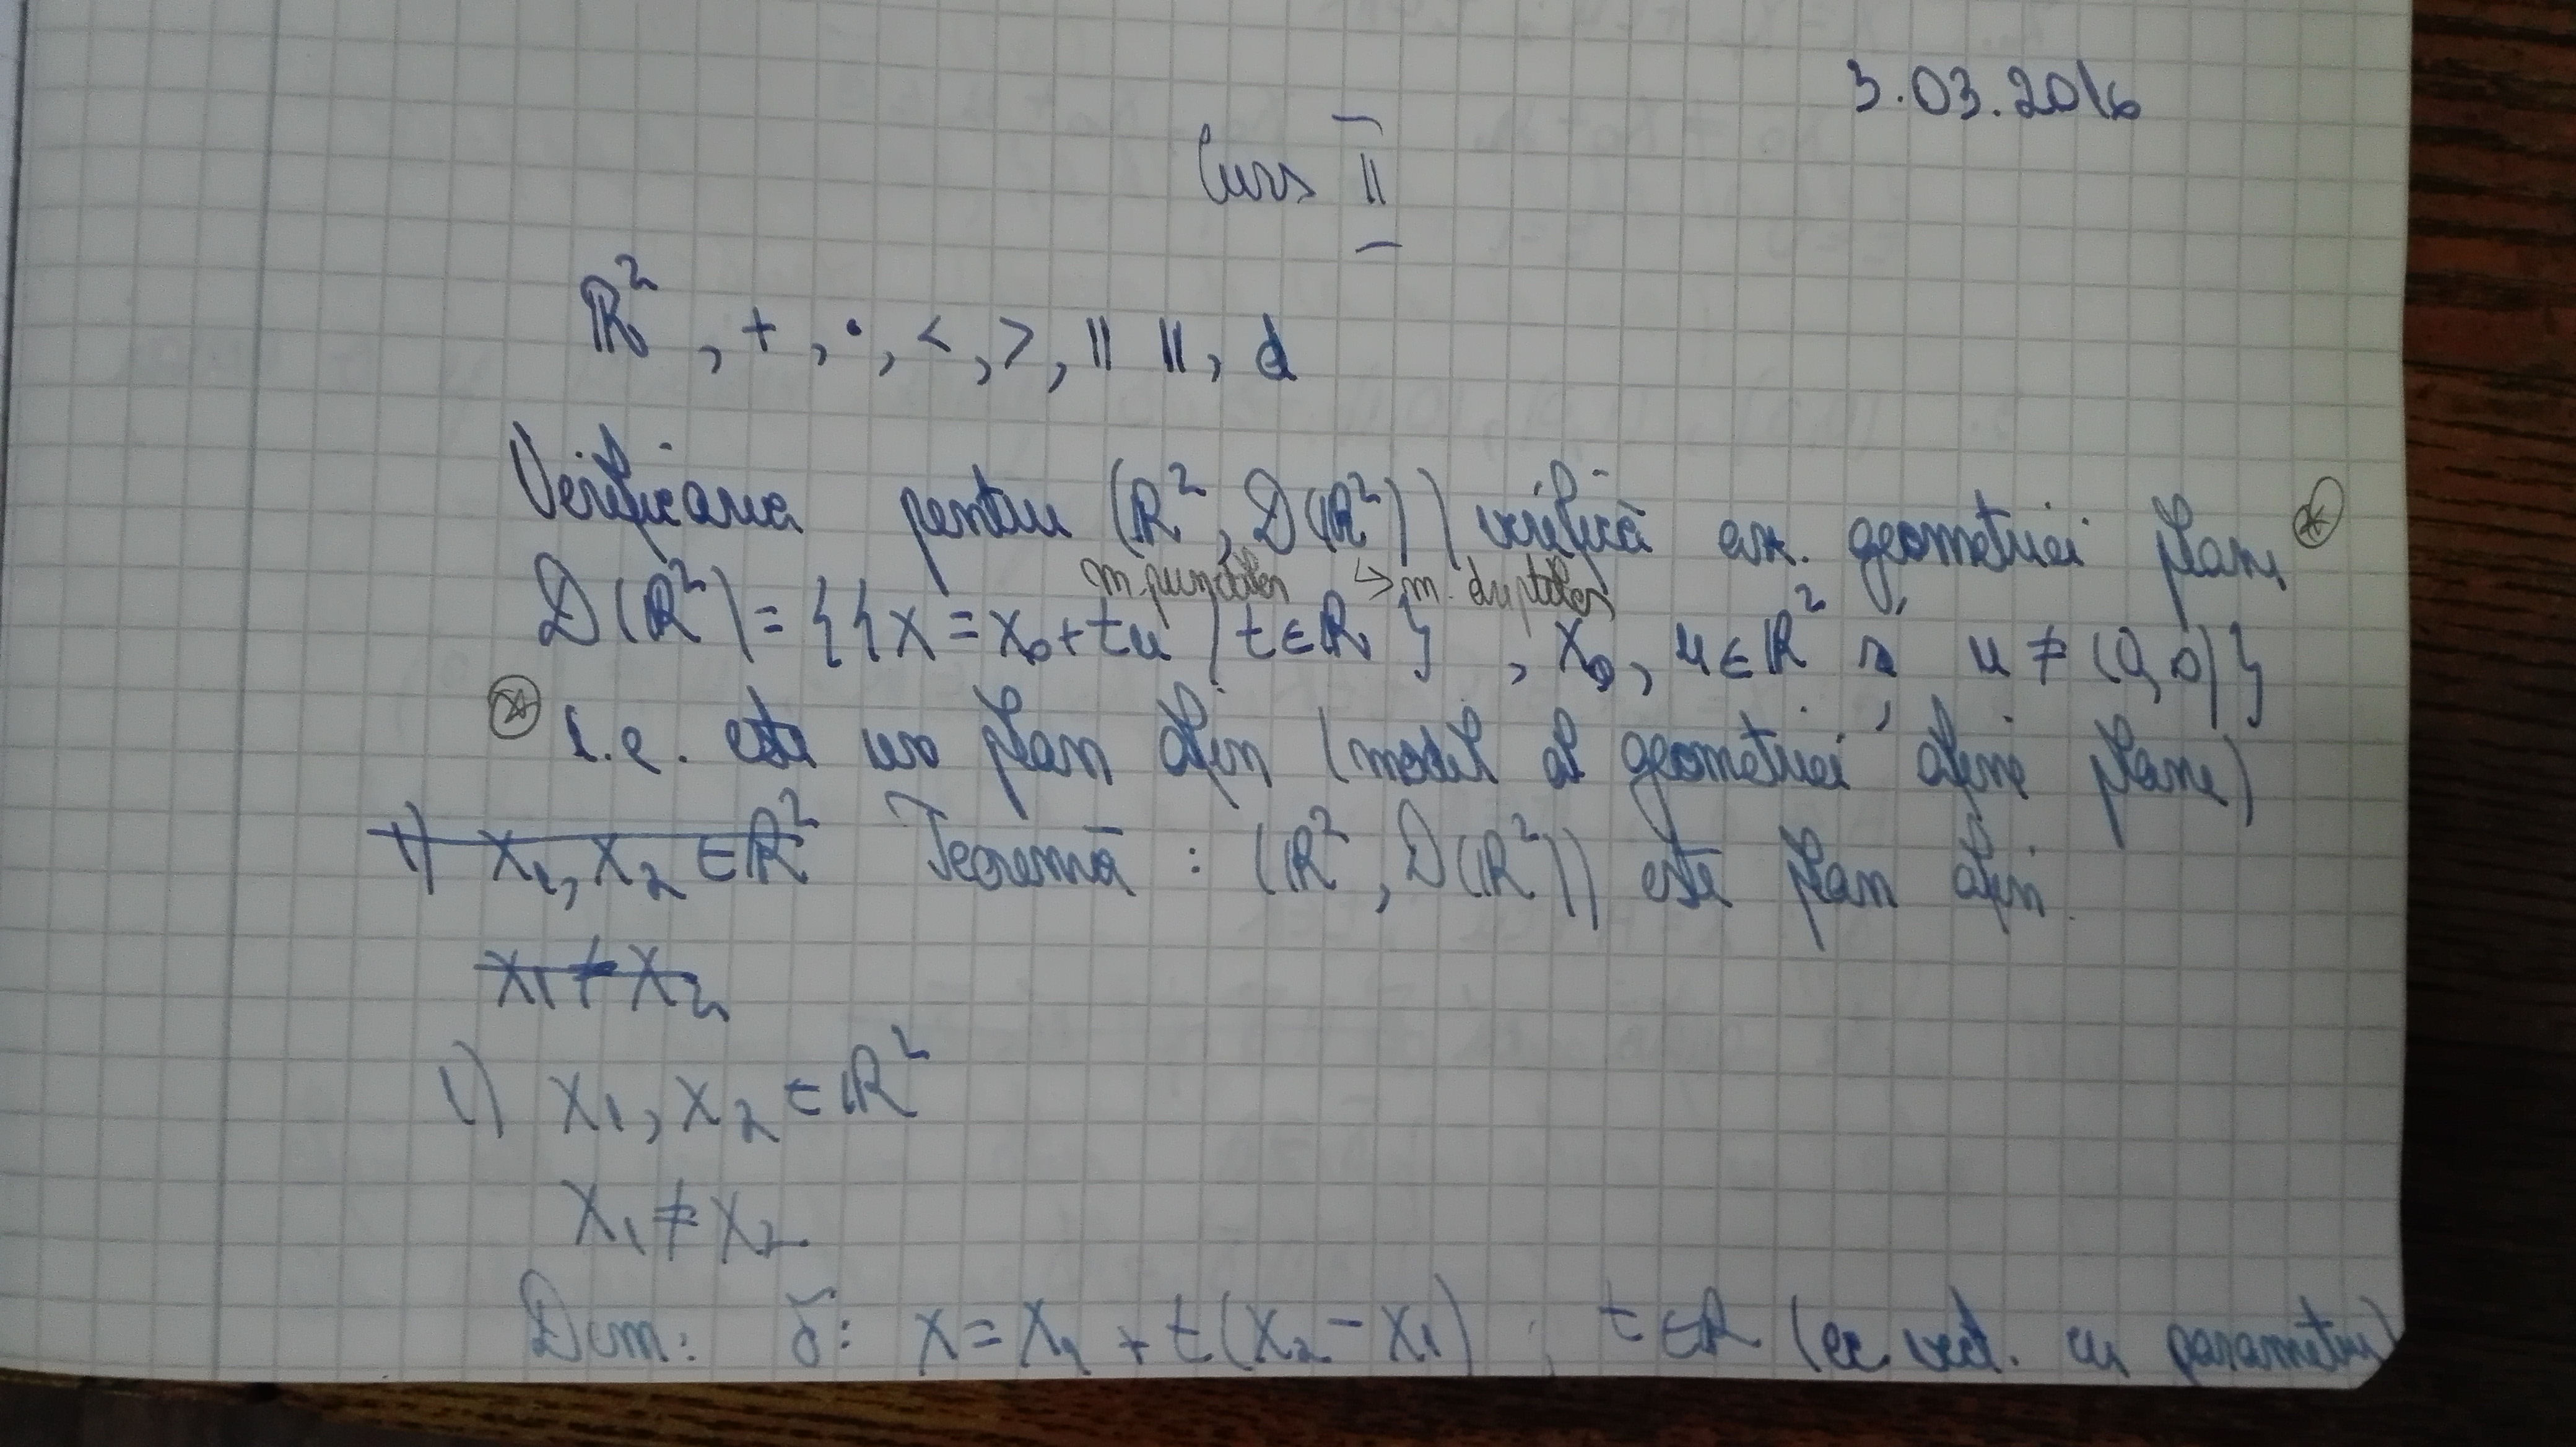 3.03.2016
Curs II
ℝ², +, ·, < , >, || ||, d
Verificarea pentru (ℝ², D(ℝ²)) verifică ax. geometriei plane ⊛
m. punctelor ↳ m. dreptelor
D(ℝ²) = {{x = x₀ + tu | t ∈ ℝ}, x₀, u ∈ ℝ² și u ≠ (0,0)}
⊛ i.e. este un plan afin (model al geometriei afine plane)
1) x₁, x₂ ∈ ℝ² Teoremă : (ℝ², D(ℝ²)) este plan afin.
x₁ ≠ x₂
1) x₁, x₂ ∈ ℝ²
x₁ ≠ x₂
Dem: δ: x = x₁ + t(x₂ - x₁) ; t ∈ ℝ (ec. vect. cu parametru)